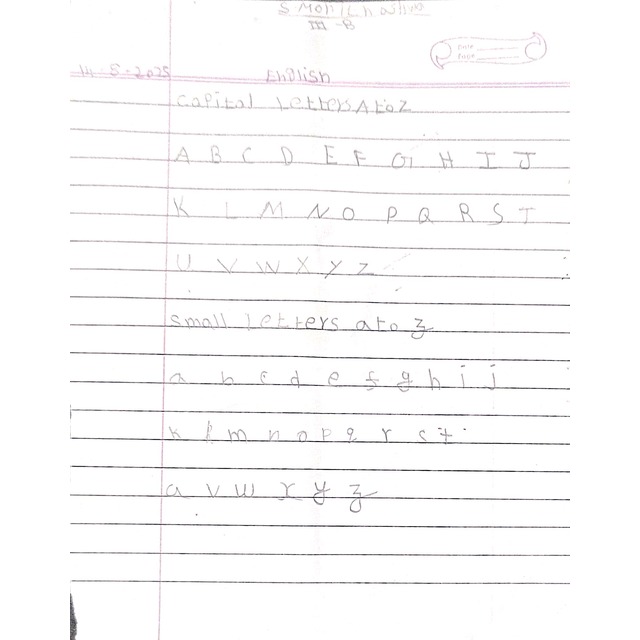 III - B
Date
Page
English
Capital Letters A to Z
A B C D E F G H I J
K L M N O P Q R S T
U V W X Y Z
small letters a to z
a b c d e f g h i j
k l m n o p q r s t
a v w x y z